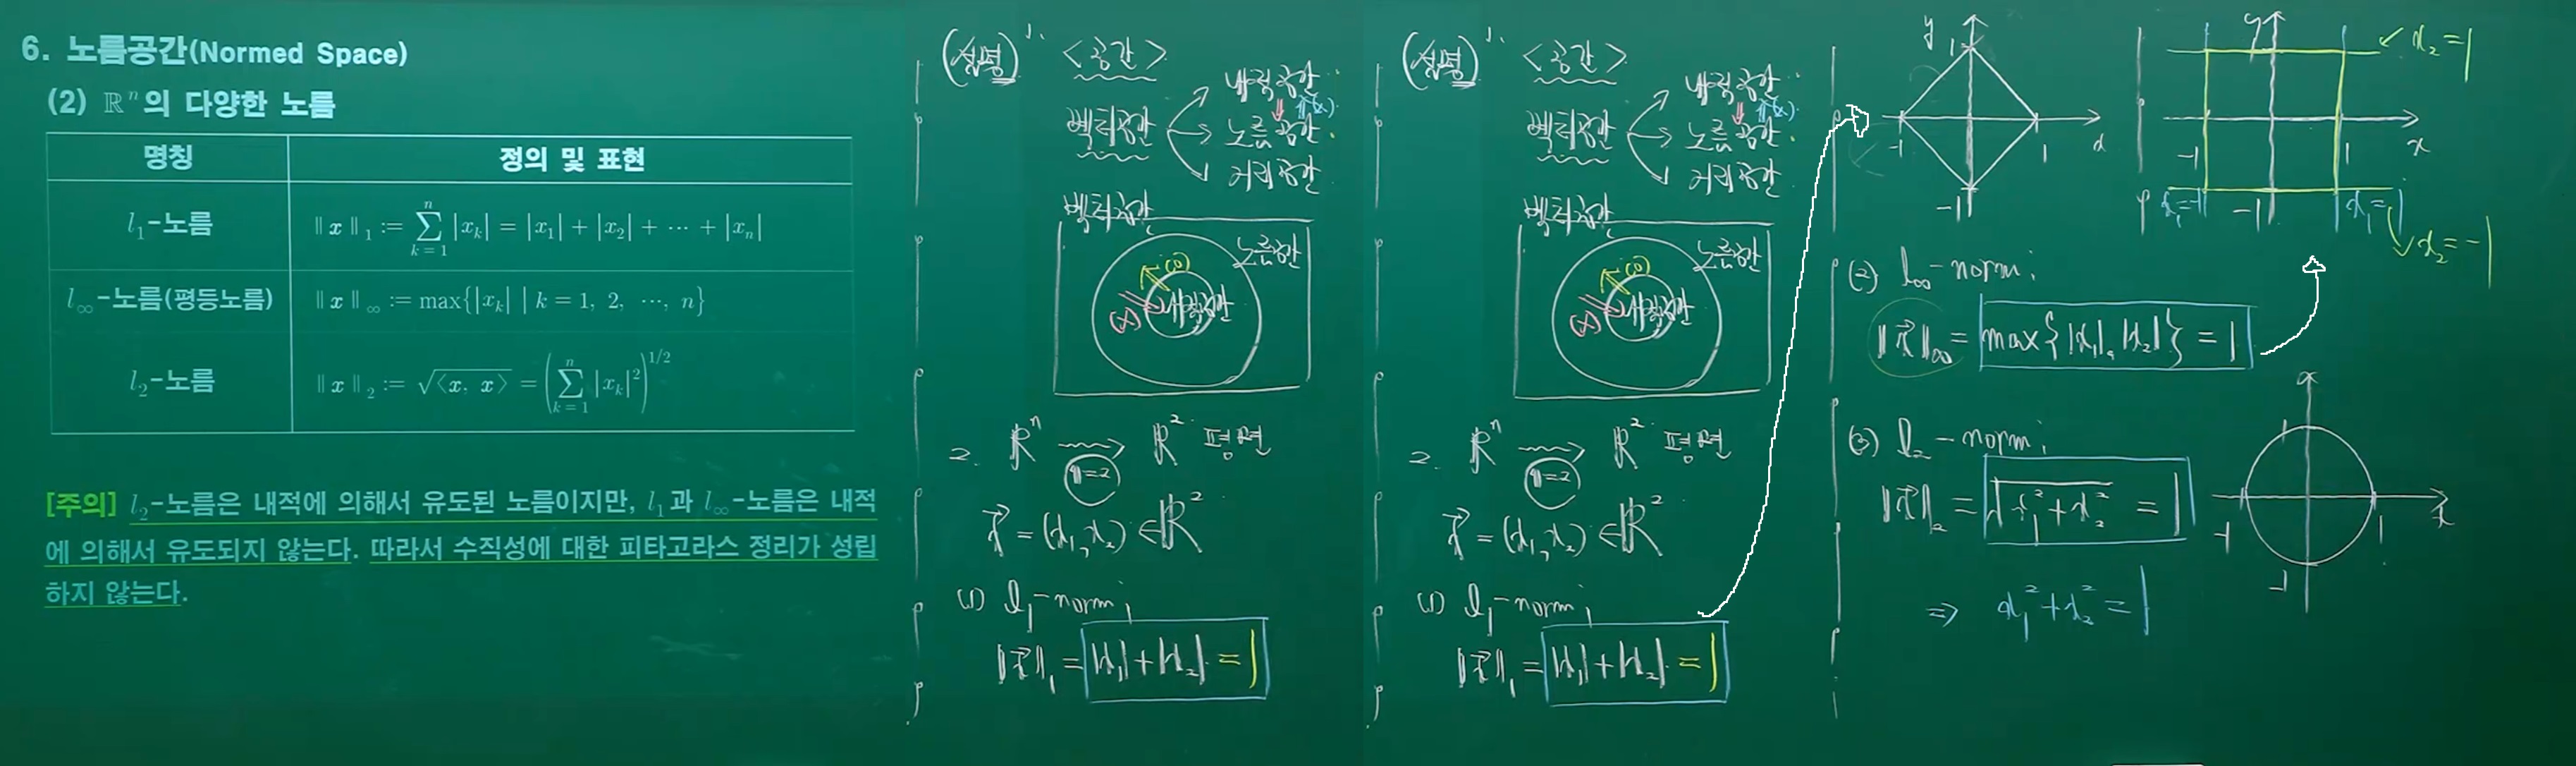 6. 노름공간(Normed Space)
(2) ℝⁿ의 다양한 노름
명칭 정의 및 표현
l₁-노름 ‖x‖₁ := ∑_{k=1}^{n} |x_k| = |x₁| + |x₂| + ⋯ + |x_n|
l_∞-노름(평등노름) ‖x‖_∞ := max{|x_k| | k = 1, 2, ⋯, n}
l₂-노름 ‖x‖₂ := √⟨x, x⟩ = (∑_{k=1}^{n} |x_k|²)^{1/2}
[주의] l₂-노름은 내적에 의해서 유도된 노름이지만, l₁과 l_∞-노름은 내적
에 의해서 유도되지 않는다. 따라서 수직성에 대한 피타고라스 정리가 성립
하지 않는다.
(설명) 1. <공간>
내적공간
⇓ ⇑(x)
벡터공간 → 노름공간
거리공간
벡터공간
노름공간
(o)
내적공간
(x)
2. ℝⁿ → ℝ² 평면
n=2
x⃗ = (x₁, x₂) ∈ ℝ²
(1) l₁-norm ;
‖x⃗‖₁ = |x₁| + |x₂| = 1
(설명) 1. <공간>
내적공간
⇓ ⇑(x)
벡터공간 → 노름공간
거리공간
벡터공간
노름공간
(o)
내적공간
(x)
2. ℝⁿ → ℝ² 평면
n=2
x⃗ = (x₁, x₂) ∈ ℝ²
(1) l₁-norm ;
‖x⃗‖₁ = |x₁| + |x₂| = 1
y
1
-1 1 x
-1
y
x₂=1
-1 1 x
x₁=-1 -1 x₁=1
x₂=-1
(2) l_∞-norm ;
‖x⃗‖_∞ = max{|x₁|, |x₂|} = 1
(3) l₂-norm ;
‖x⃗‖₂ = √x₁²+x₂² = 1
⇒ x₁²+x₂² = 1
1
-1 1 x
-1